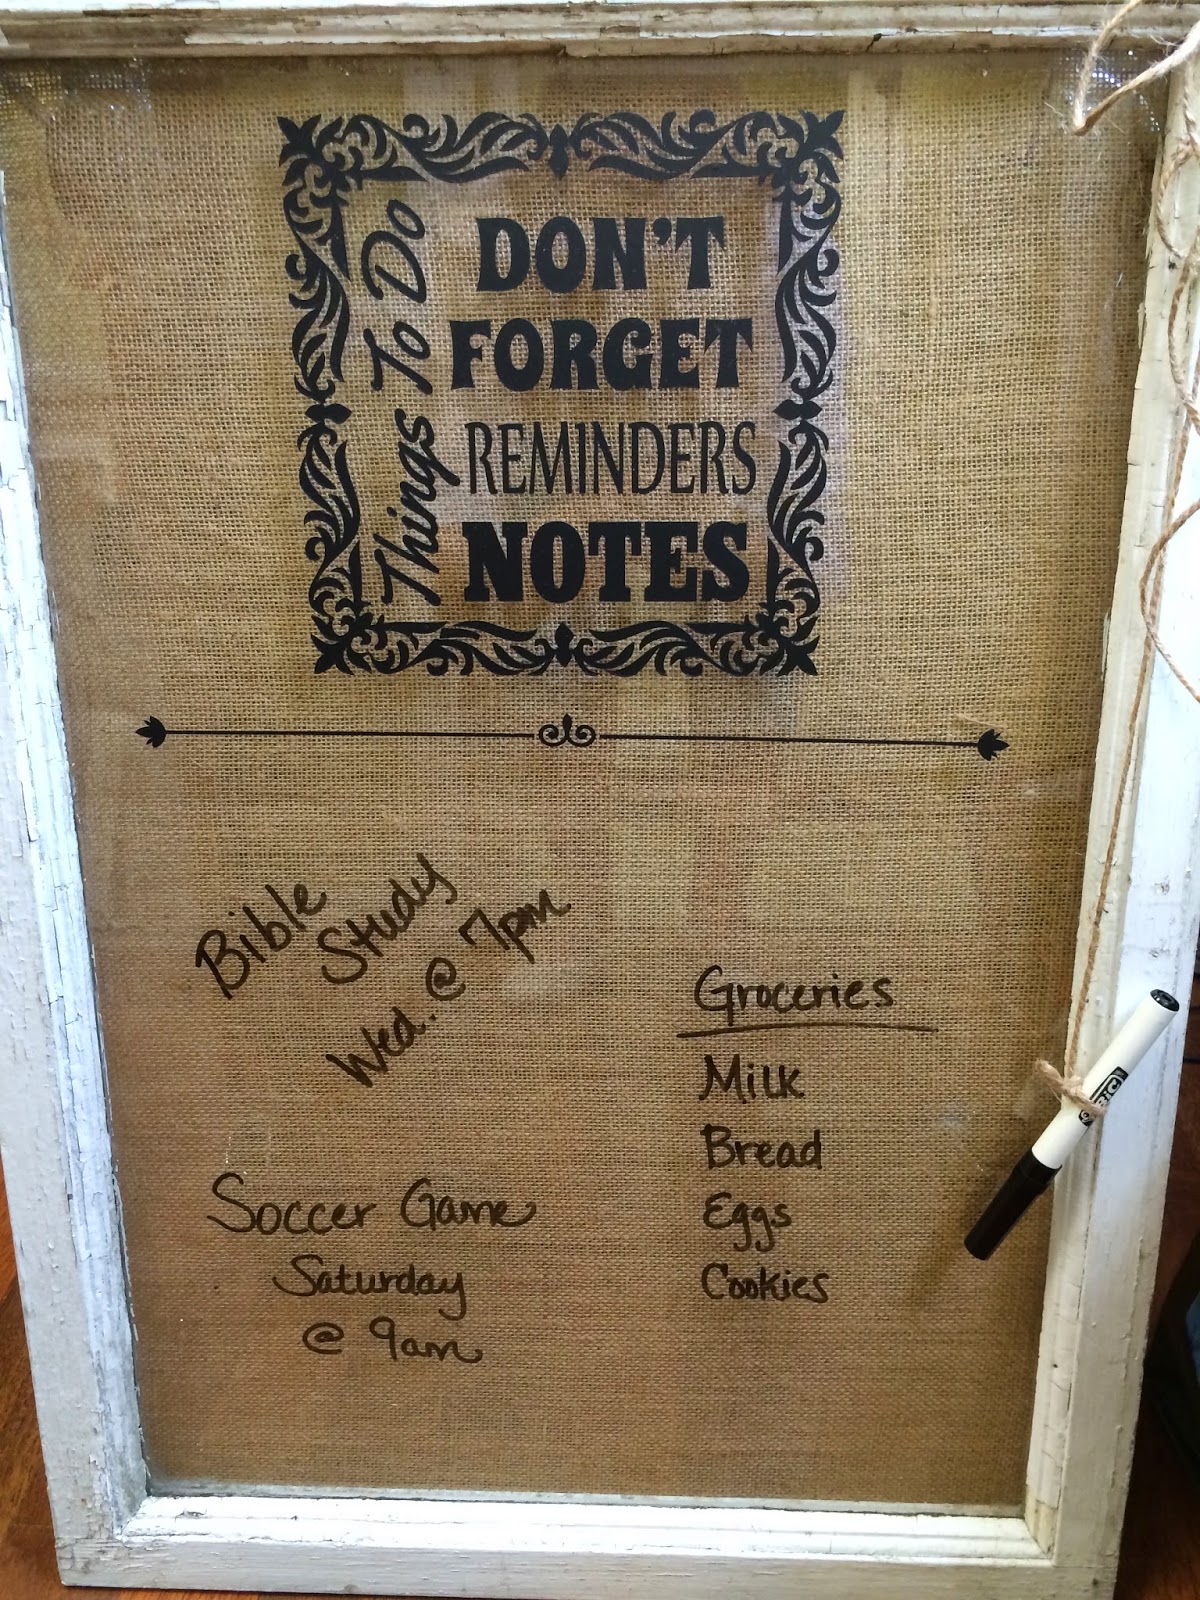 Things To Do
DON'T
FORGET
REMINDERS
NOTES
Bible
Study
Wed. @ 7pm
Soccer Game
Saturday
@ 9am
Groceries
Milk
Bread
Eggs
Cookies
BIC